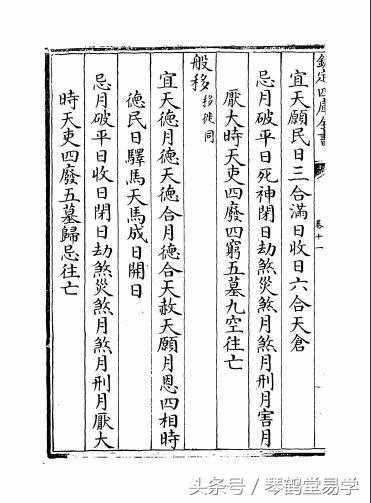 欽定四庫全書
卷十一
宜天願民日三合滿日收日六合天倉
忌月破平日死神閉日劫煞災煞月煞月刑月害月
厭大時天吏四廢四窮五墓九空往亡
般移移徙同
宜天德月德天德合月德合天赦天願月恩四相時
德民日驛馬天馬成日開日
忌月破平日收日閉日劫煞災煞月煞月刑月厭大
時天吏四廢五墓歸忌往亡
头条号 / 琴鹤堂易学